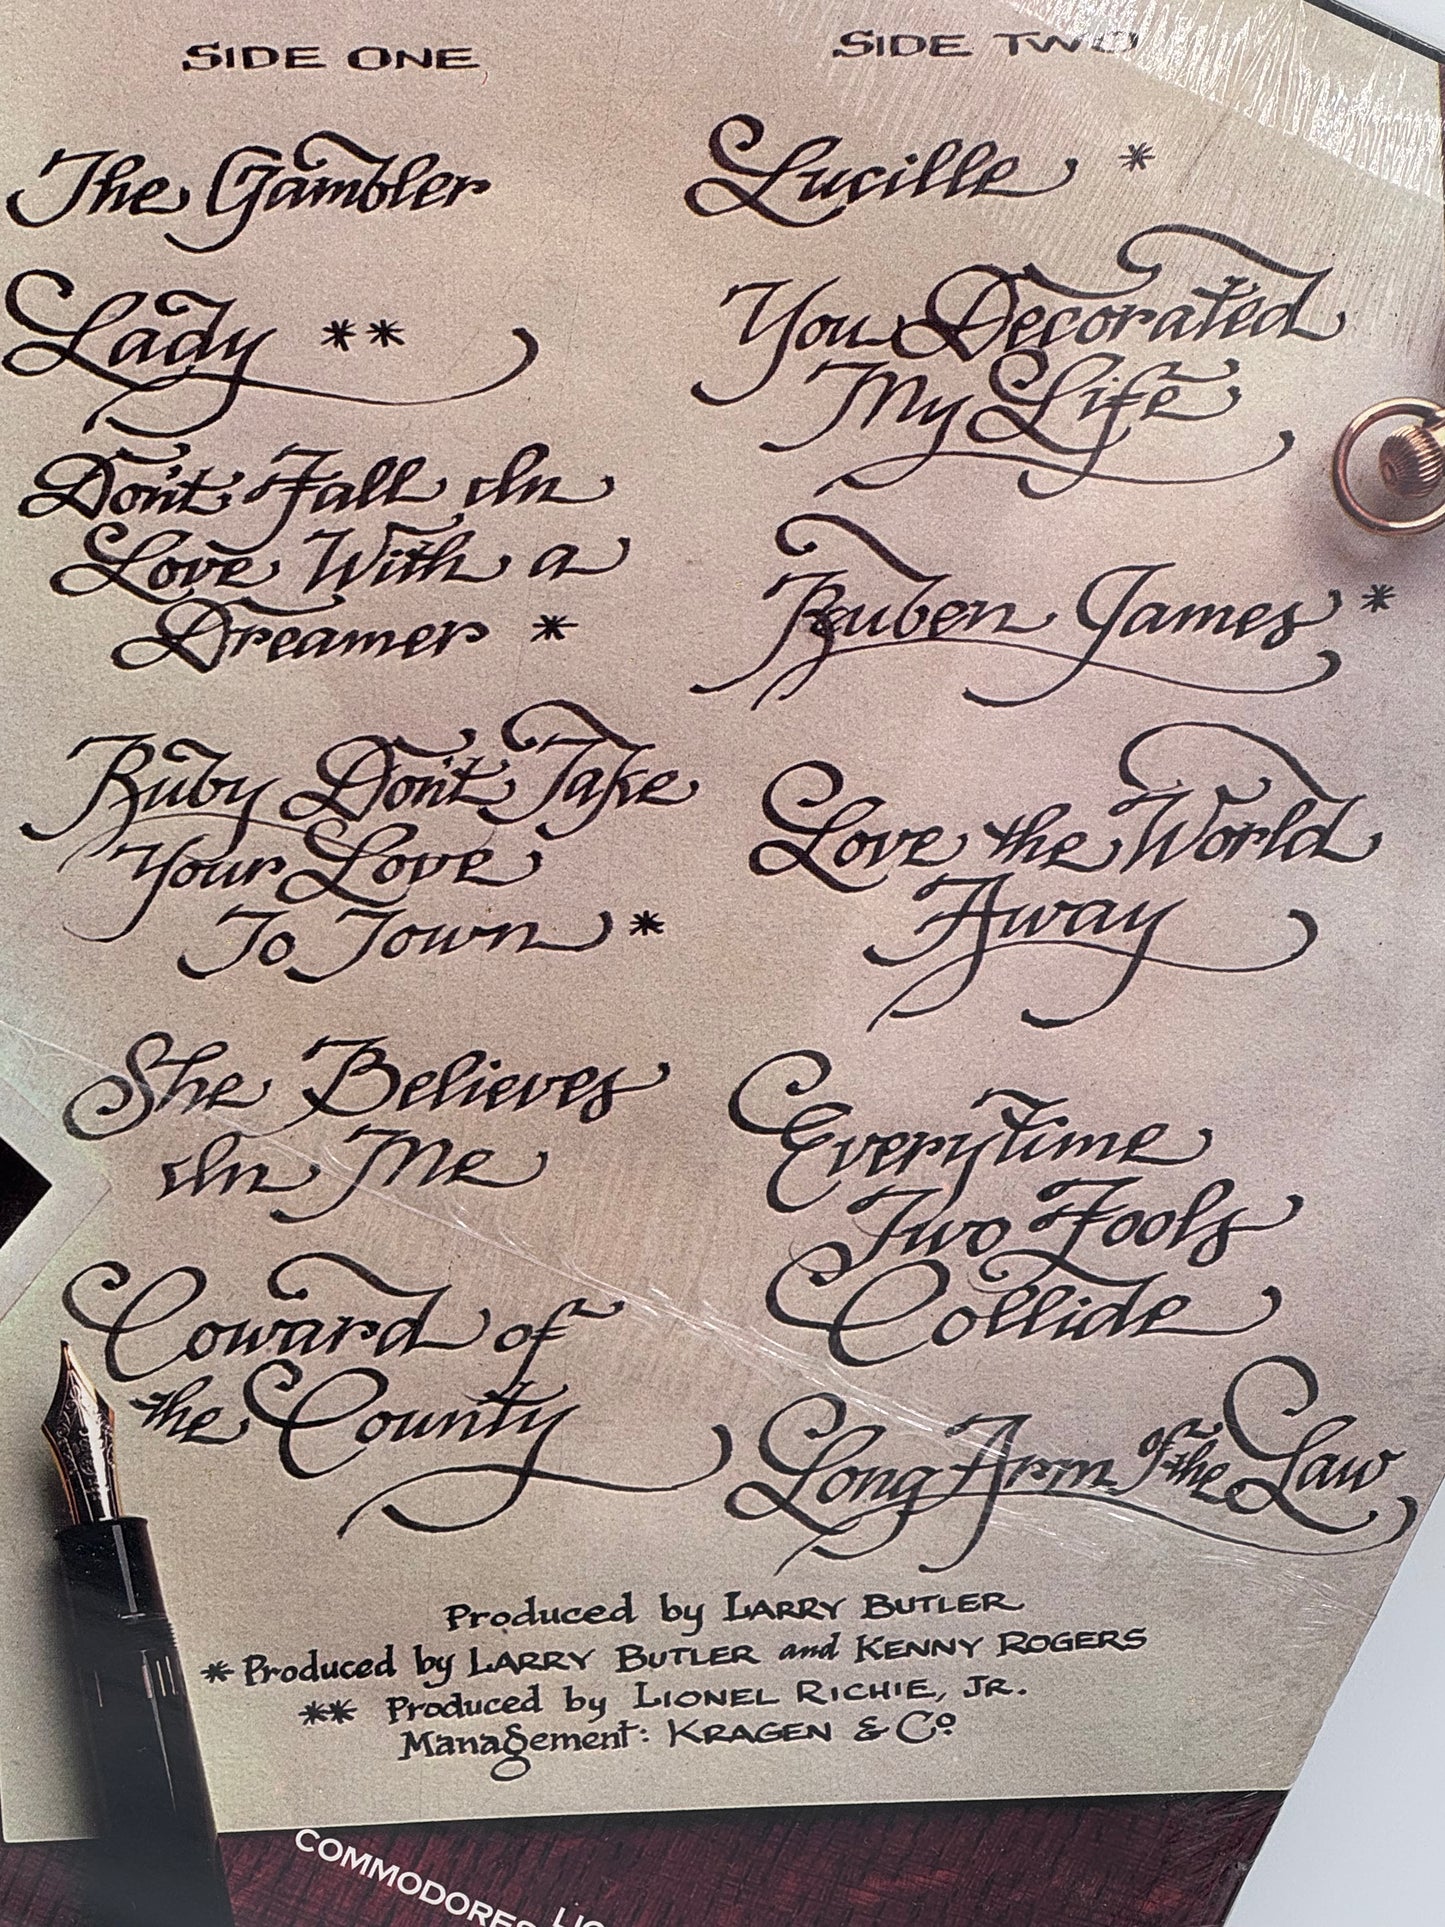 SIDE ONE
The Gambler
Lady **
Don't Fall In
Love With a
Dreamer *
Ruby Don't Take
Your Love
To Town *
She Believes
In Me
Coward of
the County
SIDE TWO
Lucille *
You Decorated
My Life
Reuben James *
Love the World
Away
Everytime
Two Fools
Collide
Long Arm Of the Law
Produced by LARRY BUTLER
* Produced by LARRY BUTLER and KENNY ROGERS
** Produced by LIONEL RICHIE, JR.
Management: KRAGEN & Co
COMMODORES